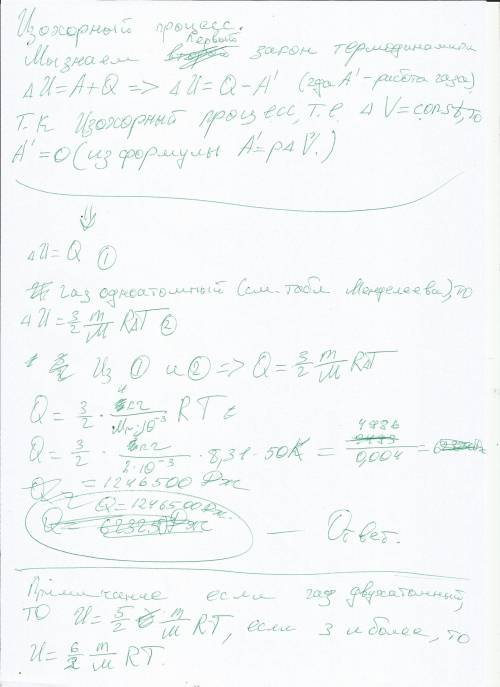 Изохорный процесс.
Первый
Мы знаем закон термодинамики
ΔU=A+Q => ΔU=Q-A' (где A' - работа газа),
Т.к Изохорный процесс, т.е. ΔV=const, то
A'=0 (из формулы A'=pΔV.)
⇓
ΔU=Q ①
газ одноатомный (см. табл Менделеева), то
ΔU=3/2 m/M RΔT ②
Из ① и ② => Q=3/2 m/M RΔT
Q=3/2 · кг/M·10⁻³ RT
Q=3/2 · кг/2·10⁻³ · 8,31·50 = 4986/0,004 =
= 1246500 Дж
Q=1246500 Дж.
— Ответ.
Примечание если газ двухатомный,
то U=5/2 m/M RT, если 3 и более, то
U=6/2 m/M RT.